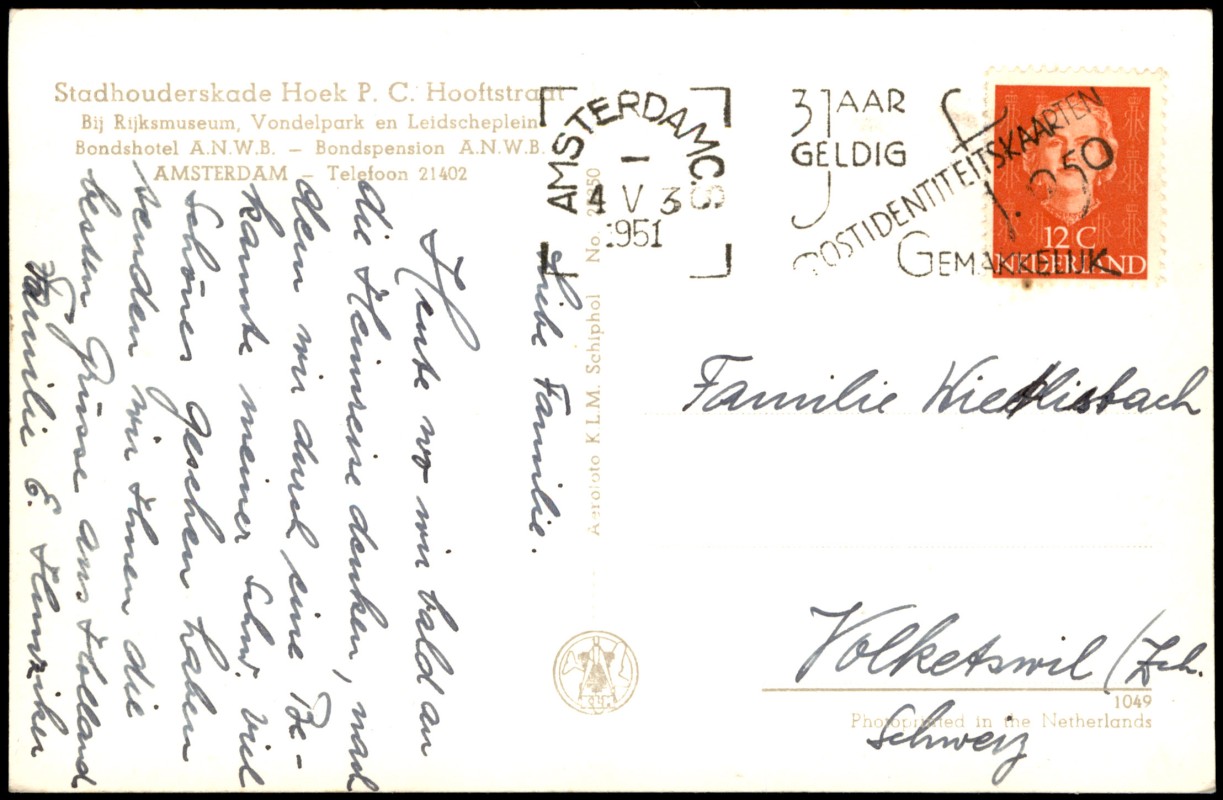 Stadhouderskade Hoek P. C. Hooftstraat
Bij Rijksmuseum, Vondelpark en Leidscheplein
Bondshotel A.N.W.B. – Bondspension A.N.W.B.
AMSTERDAM – Telefoon 21402
AMSTERDAM C.S
1
4 V 3
1951
3 JAAR
GELDIG
f
POSTIDENTITEITSKAARTEN
1.-0.50
GEMAKKELIJK
12 C
NEDERLAND
Liebe Familie.
Heute wo wir bald an
die Heimreise denken, nach
dem wir durch eine Be-
kannte meiner Schw. viel
Schönes gesehen haben
senden wir Ihnen die
besten Grüsse aus Holland
Familie E. Hunziker
Aerofoto K.L.M. Schiphol No.
Familie Wiedlisbach
Volketswil (Zch.
Schweiz
1049
Photoprinted in the Netherlands